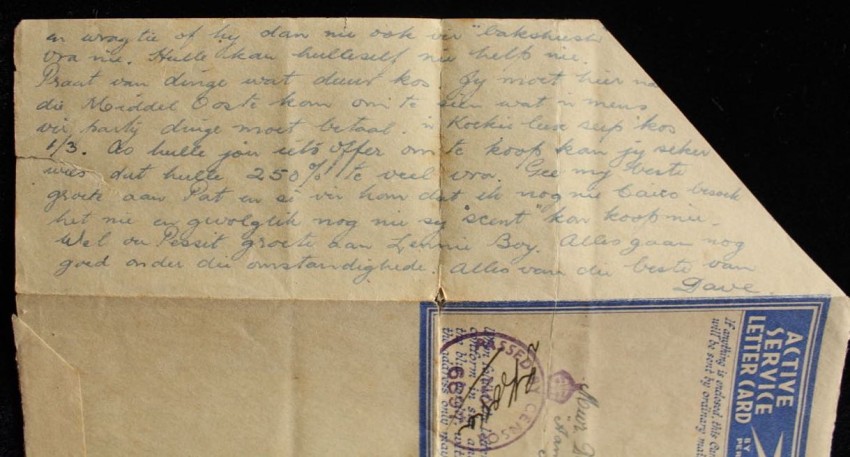 en wragtie of hy dan nie ook vir "bakshiesh
vra nie. Hulle kan hulleself nie help nie.
Praat van dinge wat duur kos. Jy moet hier na
die Middel Ooste kom om te sien wat 'n mens
vir party dinge moet betaal. 'n Koekie luxe seep kos
1/3. As hulle jou iets offer om te koop kan jy seker
wees dat hulle 250% te veel vra. Gee my beste
groete aan Pat en sê vir hom dat ek nog nie Cairo besoek
het nie en gevolglik nog nie sy "scent" kon koop nie.
Wel ou Pessit groete aan Lennie Boy. Alles gaan nog
goed onder die omstandighede. Alles van die beste van
Dave.
ACTIVE
SERVICE
LETTER CARD
BY
If anything is enclosed, this Card
will be sent by ordinary mail
PASSED BY CENSOR